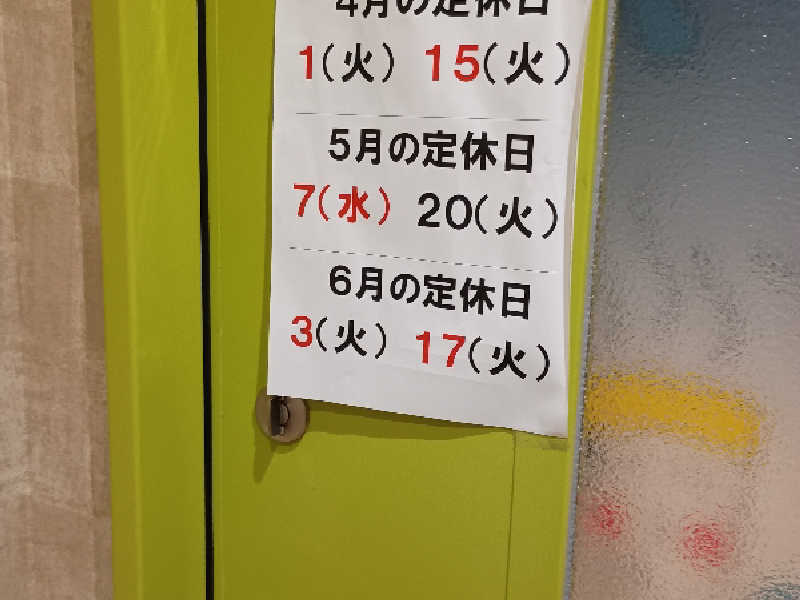 4月の定休日
1(火) 15(火)
5月の定休日
7(水) 20(火)
6月の定休日
3(火) 17(火)